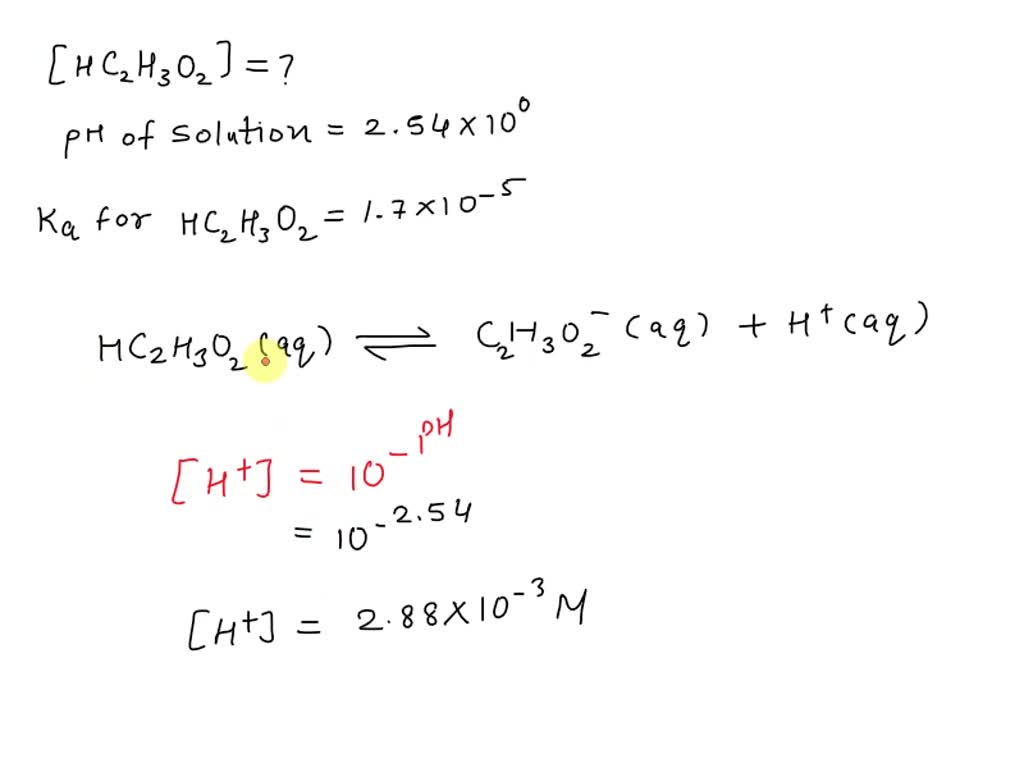 [HC₂H₃O₂] = ?
pH of solution = 2.54 × 10⁰
Ka for HC₂H₃O₂ = 1.7 × 10⁻⁵
HC₂H₃O₂ (aq) ⇌ C₂H₃O₂⁻ (aq) + H⁺ (aq)
[H⁺] = 10⁻ᵖᴴ
= 10⁻²·⁵⁴
[H⁺] = 2.88 × 10⁻³ M